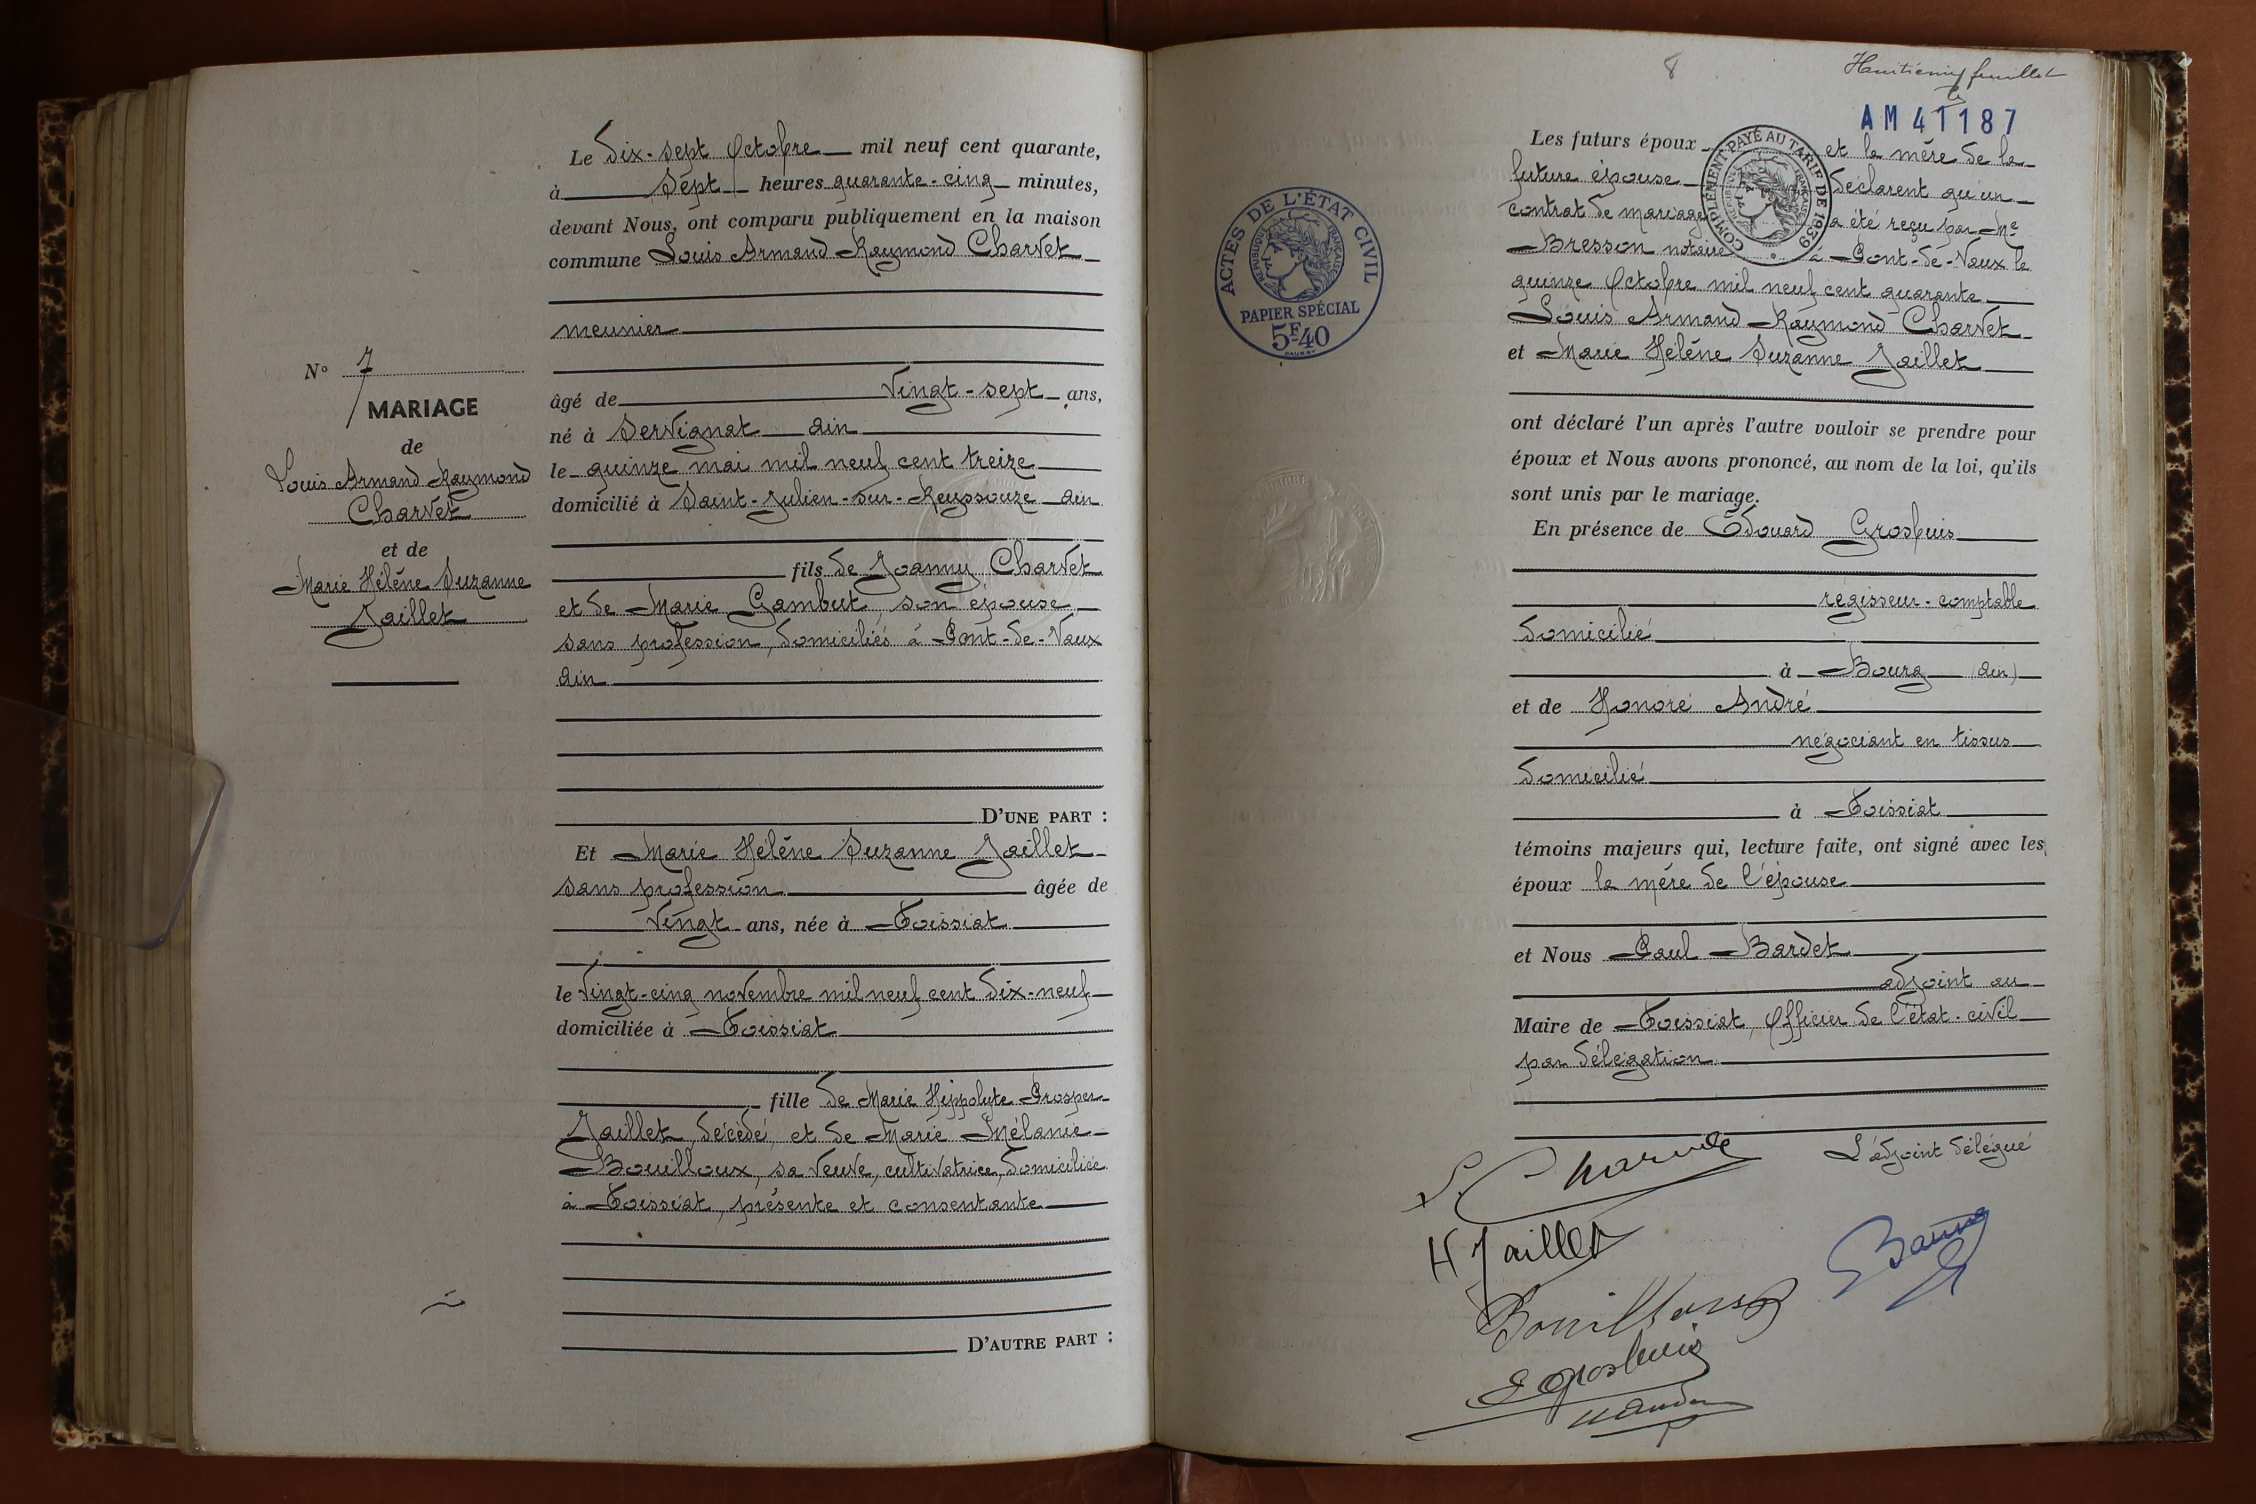 Le dix-sept Octobre mil neuf cent quarante,
à sept heures quarante-cinq minutes,
devant Nous, ont comparu publiquement en la maison
commune Louis Armand Raymond Charvet
meunier
N° 7
MARIAGE
de
Louis Armand Raymond
Charvet
et de
Marie Hélène Suzanne
Jaillet
âgé de vingt-sept ans,
né à Servignat ain
le quinze mai mil neuf cent treize
domicilié à Saint-Julien-sur-Reyssouze ain
fils de Joanny Charvet
et de Marie Gambut son épouse
sans profession, domiciliés à Pont-de-Vaux
ain
D'UNE PART :
Et Marie Hélène Suzanne Jaillet
sans profession âgée de
vingt ans, née à Foissiat
le vingt-cinq novembre mil neuf cent dix-neuf
domiciliée à Foissiat
fille de Marie Hippolyte Prosper
Jaillet, décédé, et de Marie Mélanie
Bouilloux, sa veuve, cultivatrice, domiciliée
à Foissiat, présente et consentante
D'AUTRE PART :
8
Huitième feuillet
AM 41187
ACTES DE L'ÉTAT CIVIL
RÉPUBLIQUE FRANÇAISE
PAPIER SPÉCIAL
5F40
COMPLÉMENT PAYÉ AU TARIF DE 1939
Les futurs époux et la mère de la
future épouse déclarent qu'un
contrat de mariage a été reçu par Me
Bresson notaire à Pont-de-Vaux le
quinze Octobre mil neuf cent quarante
Louis Armand Raymond Charvet
et Marie Hélène Suzanne Jaillet
ont déclaré l'un après l'autre vouloir se prendre pour
époux et Nous avons prononcé, au nom de la loi, qu'ils
sont unis par le mariage.
En présence de Édouard Grosbuis
régisseur-comptable
domicilié
à Bourg (ain)
et de Honoré André
négociant en tissus
domicilié
à Foissiat
témoins majeurs qui, lecture faite, ont signé avec les
époux la mère de l'épouse
et Nous Paul Bardet
adjoint au
Maire de Foissiat, Officier de l'état-civil
par délégation
L'adjoint délégué
L. Charvet
H Jaillet
Bouilloux
E Grosbuis